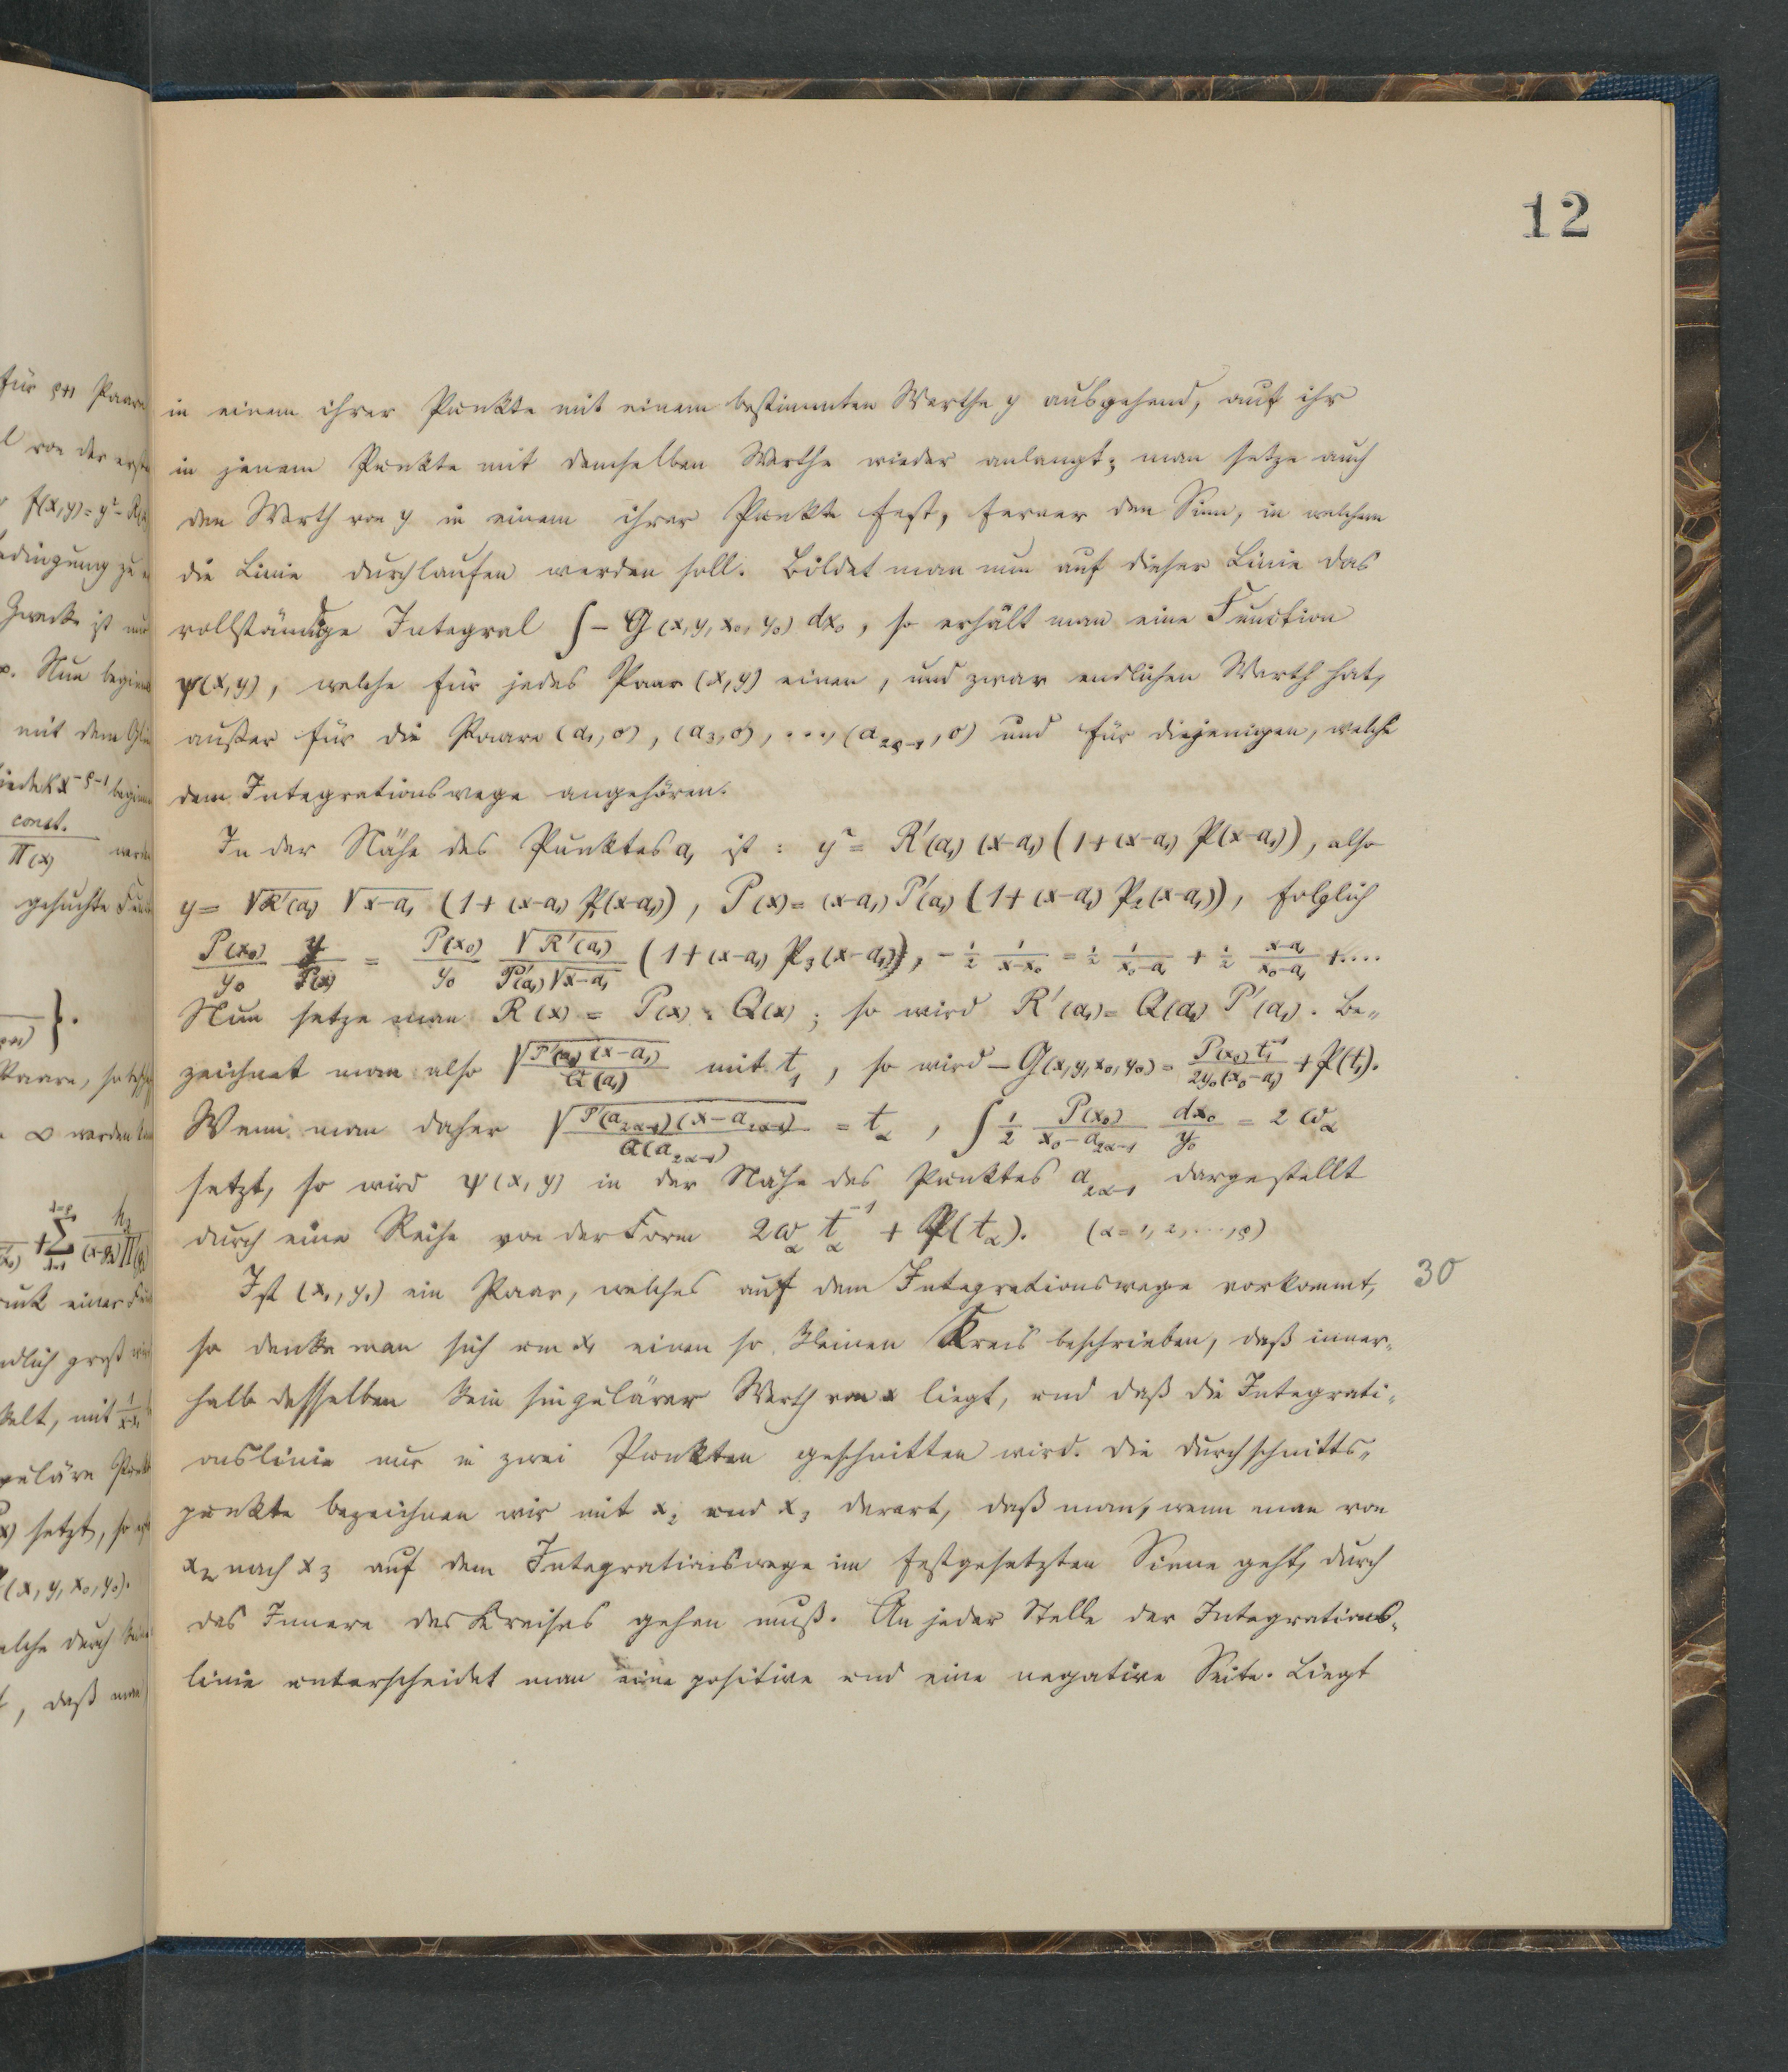 12
in einem ihrer Punkte mit einem bestimmten Werthe y ausgehend, auf ihr
in jenem Punkte mit demselben Werthe wieder anlangt; man setze auch
den Werth von y in einem ihrer Punkte fest, ferner den Sinn, in welchem
die Linie durchlaufen werden soll. Bildet man nun auf dieser Linie das
vollständige Integral ∫ – G(x, y, x₀, y₀) dx₀, so erhält man eine Function
ψ(x, y), welche für jedes Paar (x, y) einen, und zwar endlichen Werth hat,
außer für die Paare (a₁, 0), (a₃, 0), ...., (a₂ρ₋₁, 0) und für diejenigen, welche
dem Integrationswege angehören.
In der Nähe des Punktes a₁ ist : y² = R'(a₁) (x-a₁) (1 + (x-a₁) P(x-a₁)), also
y = √R'(a₁) √x-a₁ (1 + (x-a₁) P₁(x-a₁)), P(x) = (x-a₁) P'(a₁) (1 + (x-a₁) P₂(x-a₁)), folglich
P(x₀)/y₀ y/P(x) = P(x₀)/y₀ √R'(a₁)/(P'(a₁)√x-a₁) (1 + (x-a₁) P₃(x-a₁)), -½ 1/(x-x₀) = ½ 1/(x₀-a₁) + ½ (x-a₁)/(x₀-a₁) + ....
Nun setze man R(x) = P(x) . Q(x) ; so wird R'(a₁) = Q(a₁) P'(a₁). Be-
zeichnet man also √(P'(a₁)(x-a₁)/Q(a₁)) mit t₁, so wird – G(x, y, x₀, y₀) = P(x₀) t₁⁻¹/(2y₀(x₀-a₁)) + P(t₁).
Wenn man daher √(P'(a₂α₋₁)(x-a₂α₋₁)/Q(a₂α₋₁)) = tα , ∫ ½ P(x₀)/(x₀-a₂α₋₁) dx₀/y₀ = 2 ωα
setzt, so wird ψ(x, y) in der Nähe des Punktes a₂α₋₁ dargestellt
durch eine Reihe von der Form 2ωα tα⁻¹ + P(tα). (α = 1, 2, ...., ρ)
Ist (x₁, y₁) ein Paar, welches auf dem Integrationswege vorkommt, 30
so denke man sich um x₁ einen so kleinen Kreis beschrieben, daß inner-
halb desselben kein singulärer Werth von x liegt, und daß die Integrati-
onslinie nur in zwei Punkten geschnitten wird. Die Durchschnitts-
punkte bezeichnen wir mit x₂ und x₃ derart, daß man, wenn man von
x₂ nach x₃ auf dem Integrationswege im festgesetzten Sinne geht, durch
das Innere des Kreises gehen muß. An jeder Stelle der Integrations-
linie unterscheidet man eine positive und eine negative Seite. Liegt